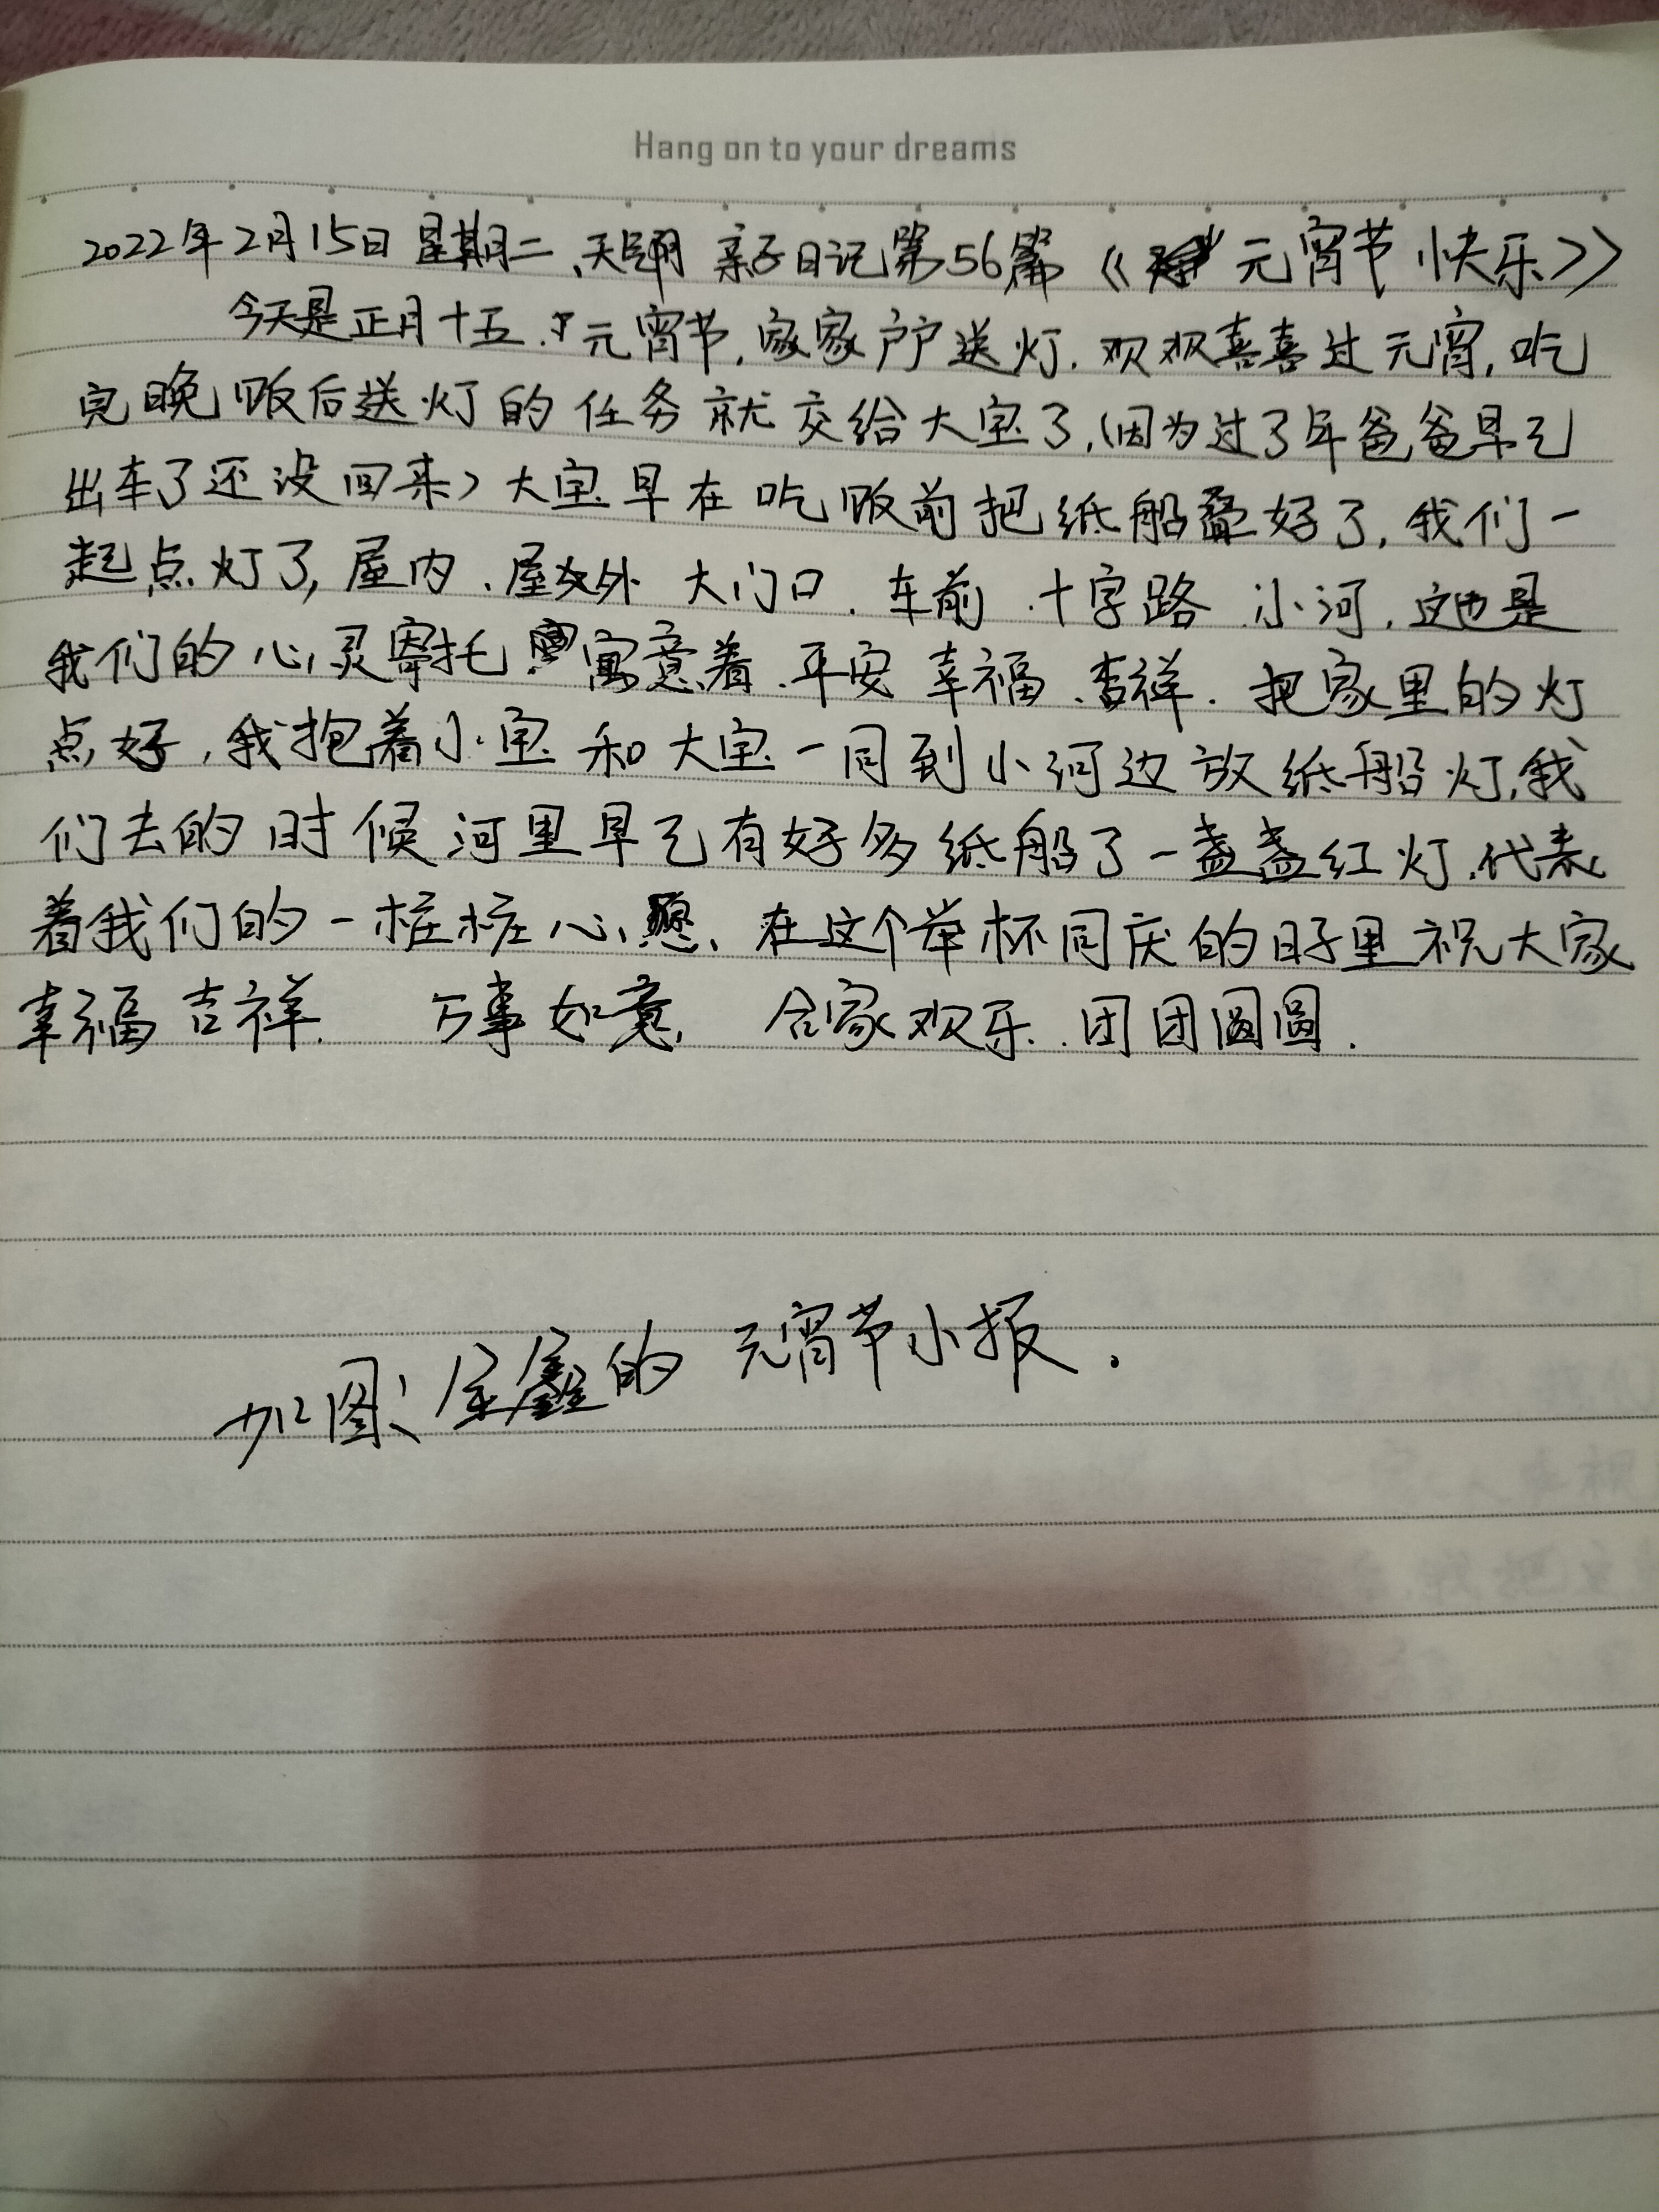 Hang on to your dreams
2022年2月15日 星期二、天气晴 亲子日记第56篇《元宵节快乐》
今天是正月十五.元宵节,家家户户送灯.欢欢喜喜过元宵,吃
完晚饭后送灯的任务就交给大宝了,(因为过了年爸爸早已
出车了还没回来)大宝早在吃饭前把纸船叠好了,我们一
起点灯了,屋内、屋外 大门口.车前.十字路 小河.这也是
我们的心灵寄托 寓意着.平安 幸福、吉祥.把家里的灯
点好,我抱着小宝和大宝一同到小河边放纸船灯,我
们去的时候河里早已有好多纸船了一盏盏红灯.代表
着我们的一桩桩心愿、在这个举杯同庆的日子里祝大家
幸福吉祥. 万事如意, 合家欢乐.团团圆圆.
加图:鑫的 元宵节小报.